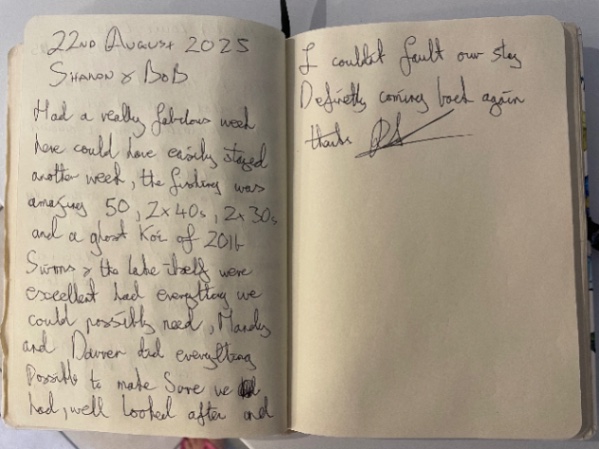 22ND AUGUST 2025
SHARON & BOB
Had a really fabulous week
here could have easily stayed
another week, the fishing was
amazing 50, 2x40s, 2x30s
and a ghost Koi of 20lb
Swims & the lake itself were
excellent had everything we
could possibly need, Mandy
and Darren did everything
Possible to make Sure we
had, well looked after and
I couldn't fault our stay
Definetly coming back again
thanks